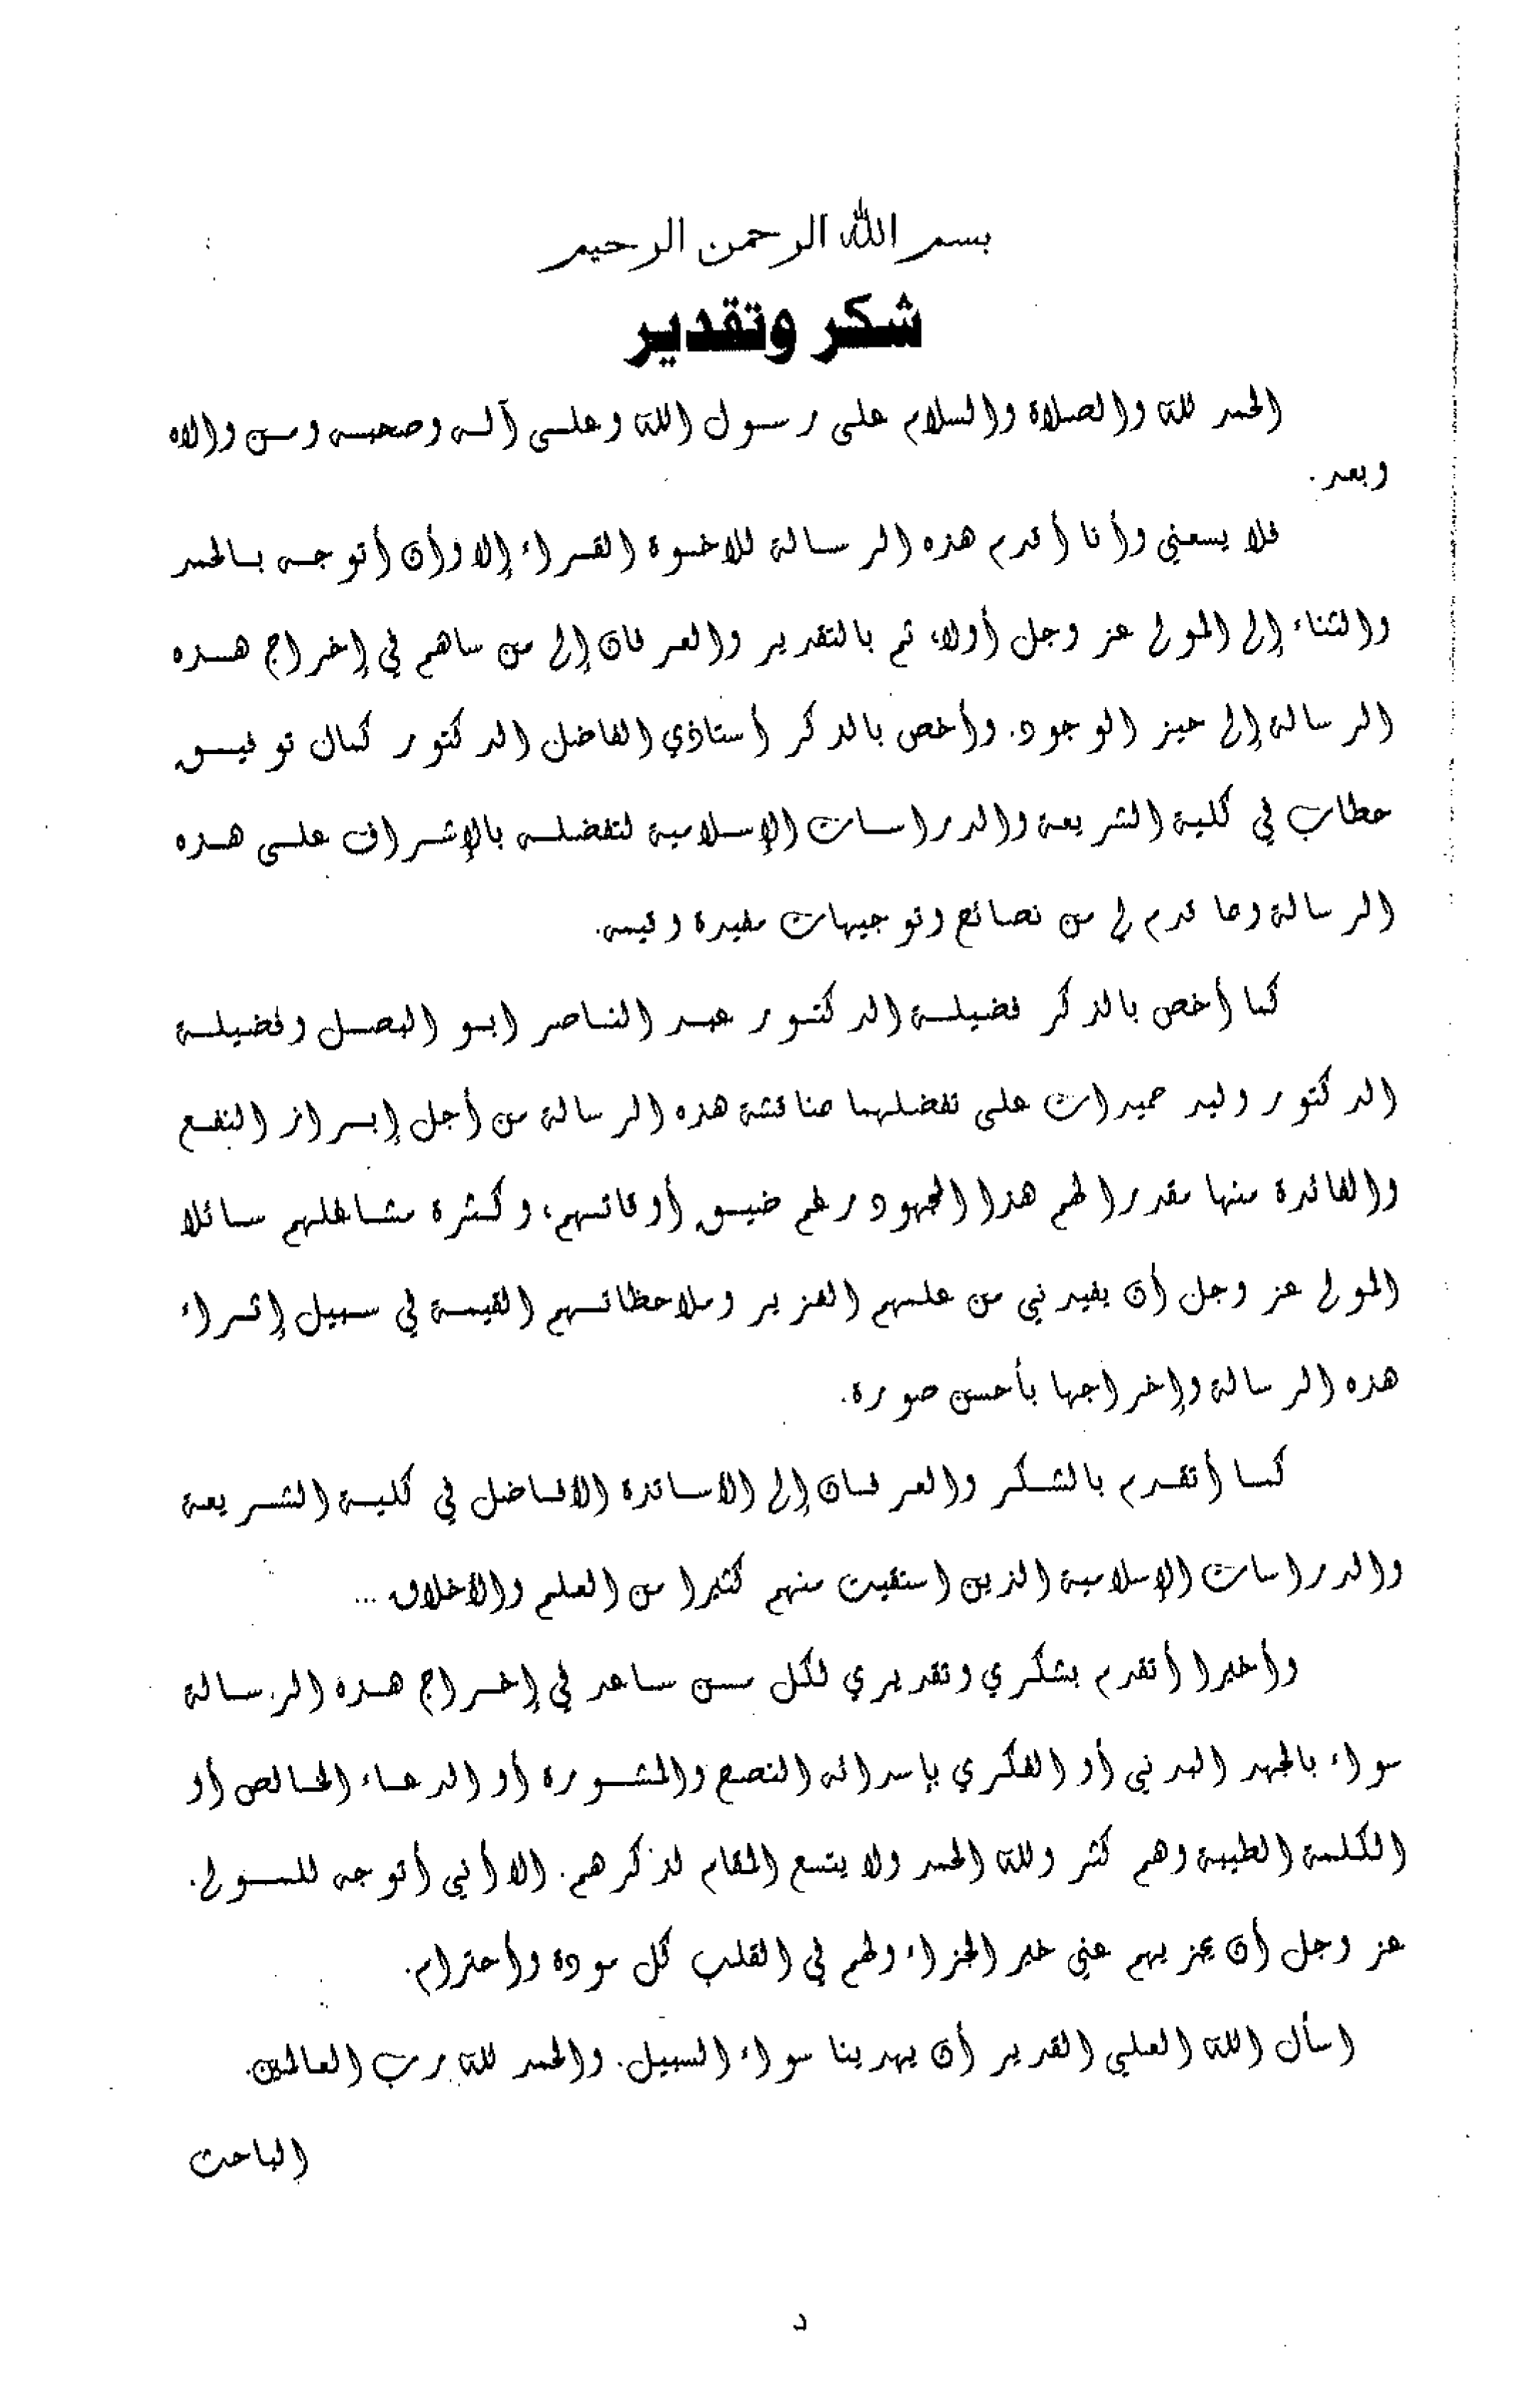 بسم الله الرحمن الرحيم
شكر وتقدير
الحمد لله والصلاة والسلام على رسول الله وعلى آله وصحبه ومن والاه
وبعد.
فلا يسعني وأنا أقدم هذه الرسالة للاخوة القراء إلا وأن أتوجه بالحمد
والثناء إلى المولى عز وجل أولا، ثم بالتقدير والعرفان إلى من ساهم في إخراج هذه
الرسالة إلى حيز الوجود. وأخص بالذكر أستاذي الفاضل الدكتور كمال توفيق
حطاب في كلية الشريعة والدراسات الإسلامية لتفضله بالإشراف على هذه
الرسالة وما قدم لي من نصائح وتوجيهات مفيدة وقيمه.
كما أخص بالذكر فضيلة الدكتور عبد الناصر ابو البصل وفضيلة
الدكتور وليد حميدات على تفضلهما مناقشة هذه الرسالة من أجل إبراز النفع
والفائدة منها مقدرا لهم هذا المجهود رغم ضيق أوقاتهم، وكثرة مشاغلهم سائلا
المولى عز وجل أن يفيدني من علمهم الغزير وملاحظاتهم القيمة في سبيل إثراء
هذه الرسالة وإخراجها بأحسن صورة.
كما أتقدم بالشكر والعرفان إلى الأساتذة الأفاضل في كلية الشريعة
والدراسات الإسلامية الذين استقيت منهم كثيرا من العلم والأخلاق ...
وأخيرا أتقدم بشكري وتقديري لكل من ساعد في إخراج هذه الرسالة
سواء بالجهد البدني أو الفكري بإسدائه النصح والمشورة أو الدعاء الخالص أو
الكلمة الطيبة وهم كثر ولله الحمد ولا يتسع المقام لذكرهم. الا أني أتوجه للمولى.
عز وجل أن يجزيهم عني خير الجزاء ولهم في القلب كل مودة وأحترام.
اسأل الله العلي القدير أن يهدينا سواء السبيل. والحمد لله رب العالمين.
الباحث
د